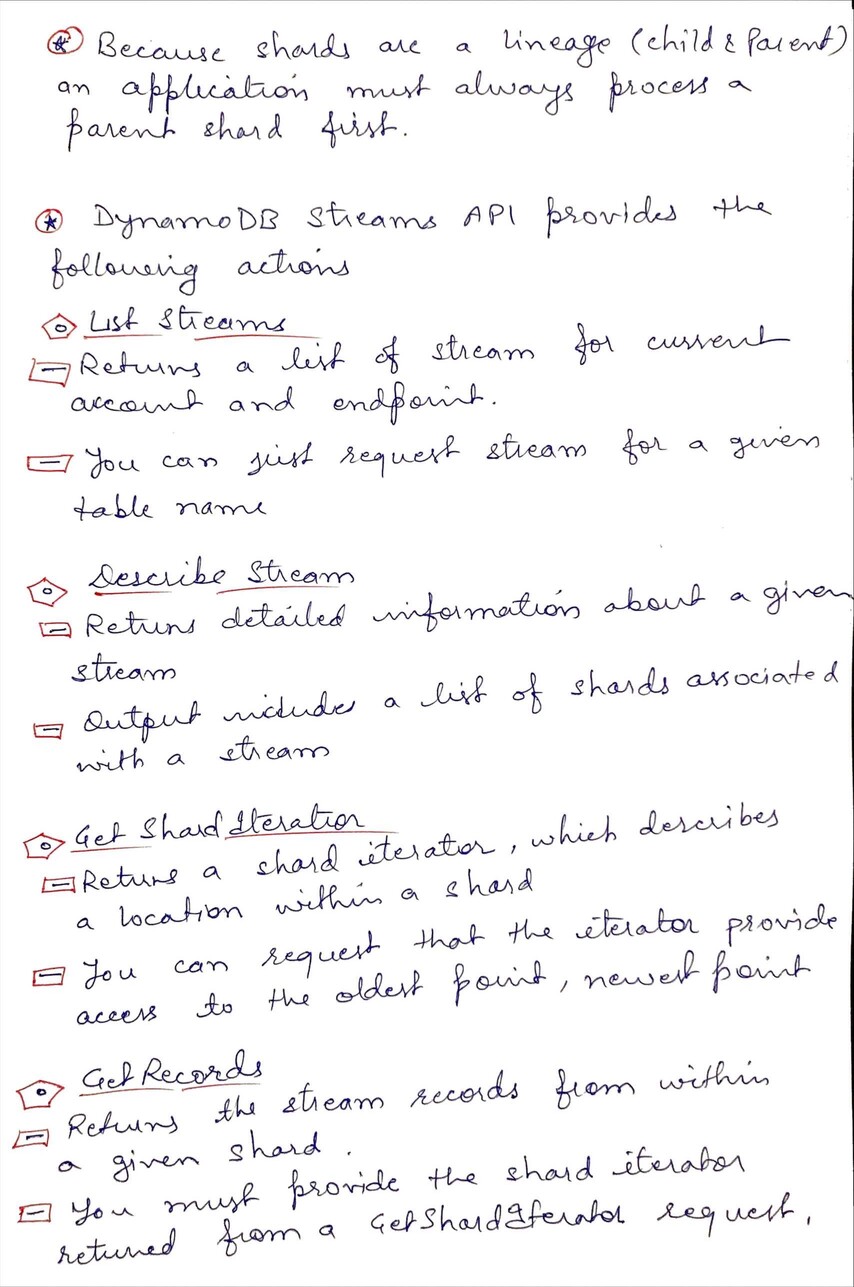 Because shards are a lineage (child & Parent)
an application must always process a
parent shard first.
DynamoDB Streams API provides the
following actions
List Streams
Returns a list of stream for current
account and endpoint.
You can just request stream for a given
table name
Describe Stream
Returns detailed information about a given
stream
Output includes a list of shards associated
with a stream
Get Shard Iteratior
Returns a shard iterator, which describes
a location within a shard
You can request that the iterator provide
access to the oldest point, newest point
Get Records
Returns the stream records from within
a given shard.
You must provide the shard iterator
returned from a GetShardIterator request.